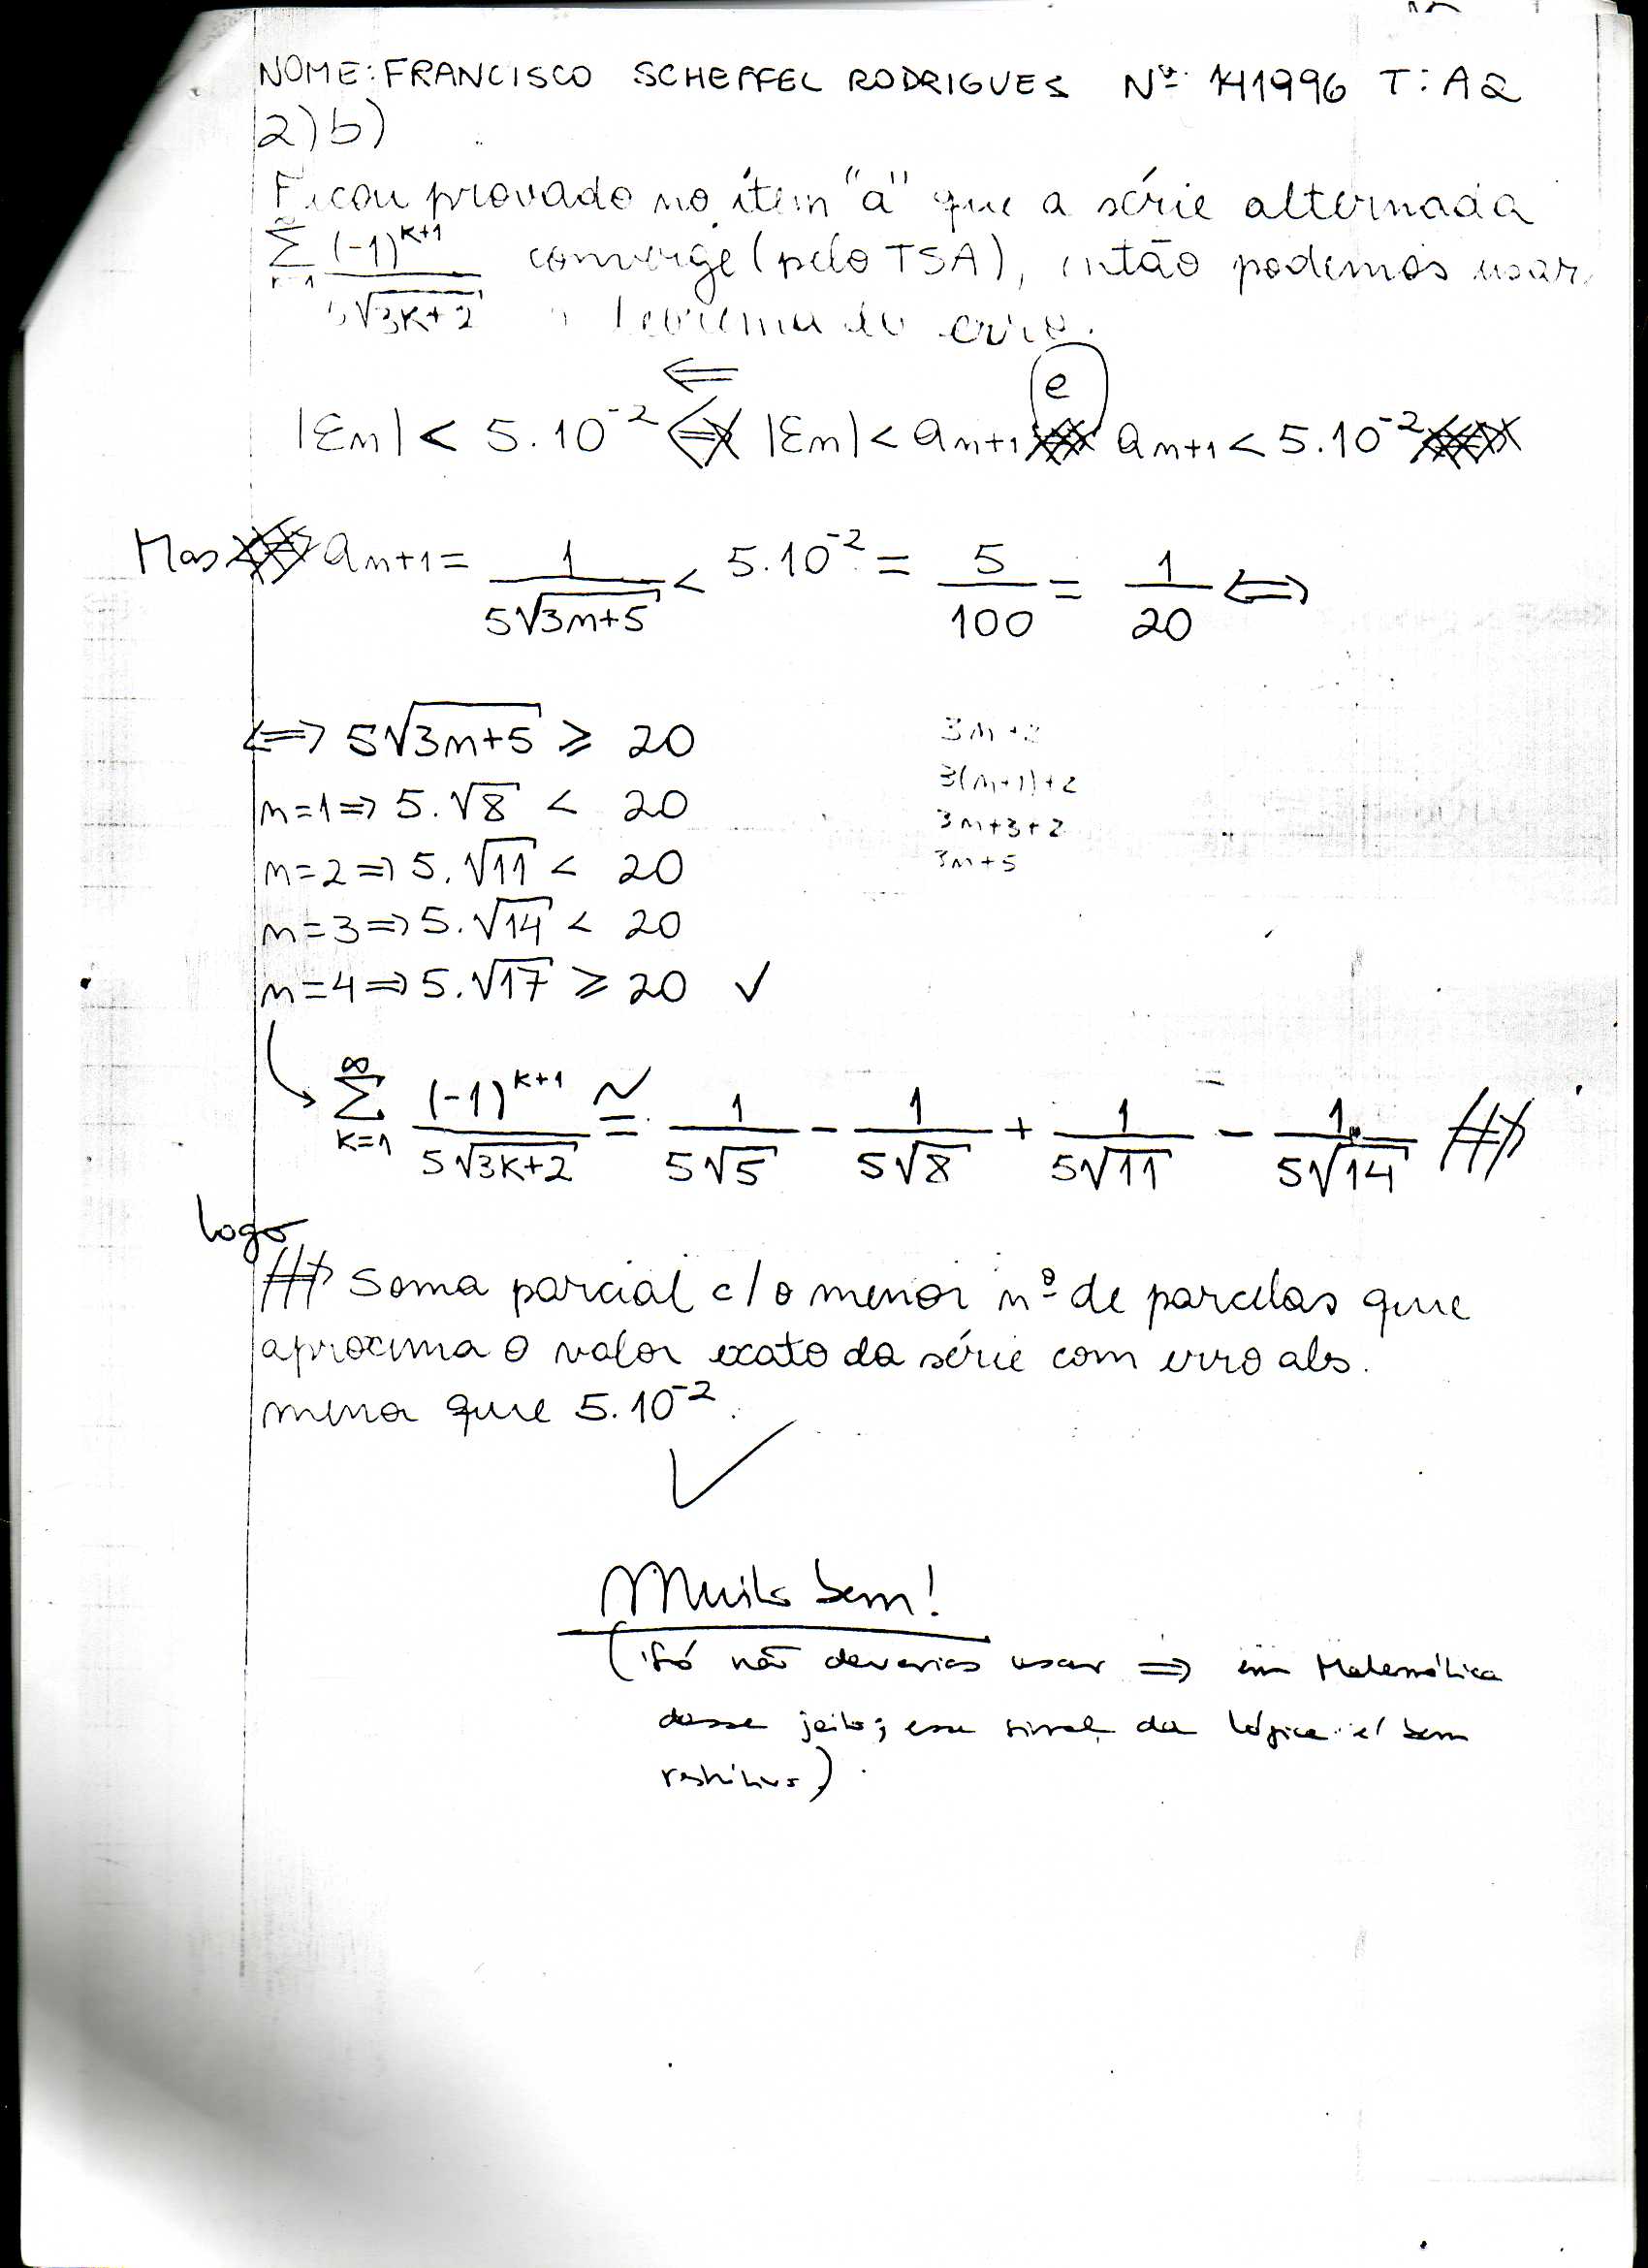 NOME: FRANCISCO SCHEFFEL RODRIGUES Nº 141996 T: A2
2)b)
Ficou provado no ítem "a" que a série alternada
∑ k=1 ∞ (-1)^{k+1} / 5√(3k+2) converge (pelo TSA), então podemos usar
o teorema do erro.
⇐
|En| < 5.10^{-2} |En| < a_{n+1} e a_{n+1} < 5.10^{-2}
Mas a_{n+1} = 1 / 5√(3n+5) < 5.10^{-2} = 5/100 = 1/20 ⇔
⇔ 5√(3n+5) ≥ 20
n=1 ⇒ 5.√8 < 20
n=2 ⇒ 5.√11 < 20
n=3 ⇒ 5.√14 < 20
n=4 ⇒ 5.√17 ≥ 20 ✓
3n+2
3(n+1)+2
3n+3+2
3n+5
∑ k=1 ∞ (-1)^{k+1} / 5√(3k+2) ≅ 1/5√5 - 1/5√8 + 1/5√11 - 1/5√14
Logo
Soma parcial c/ o menor nº de parcelas que
aproxima o valor exato da série com erro abs.
menor que 5.10^{-2}.
✓
Muito bem!
(Só não deverias usar ⇒ em Matemática
desse jeito; esse sinal da lógica é bem
restritivo)